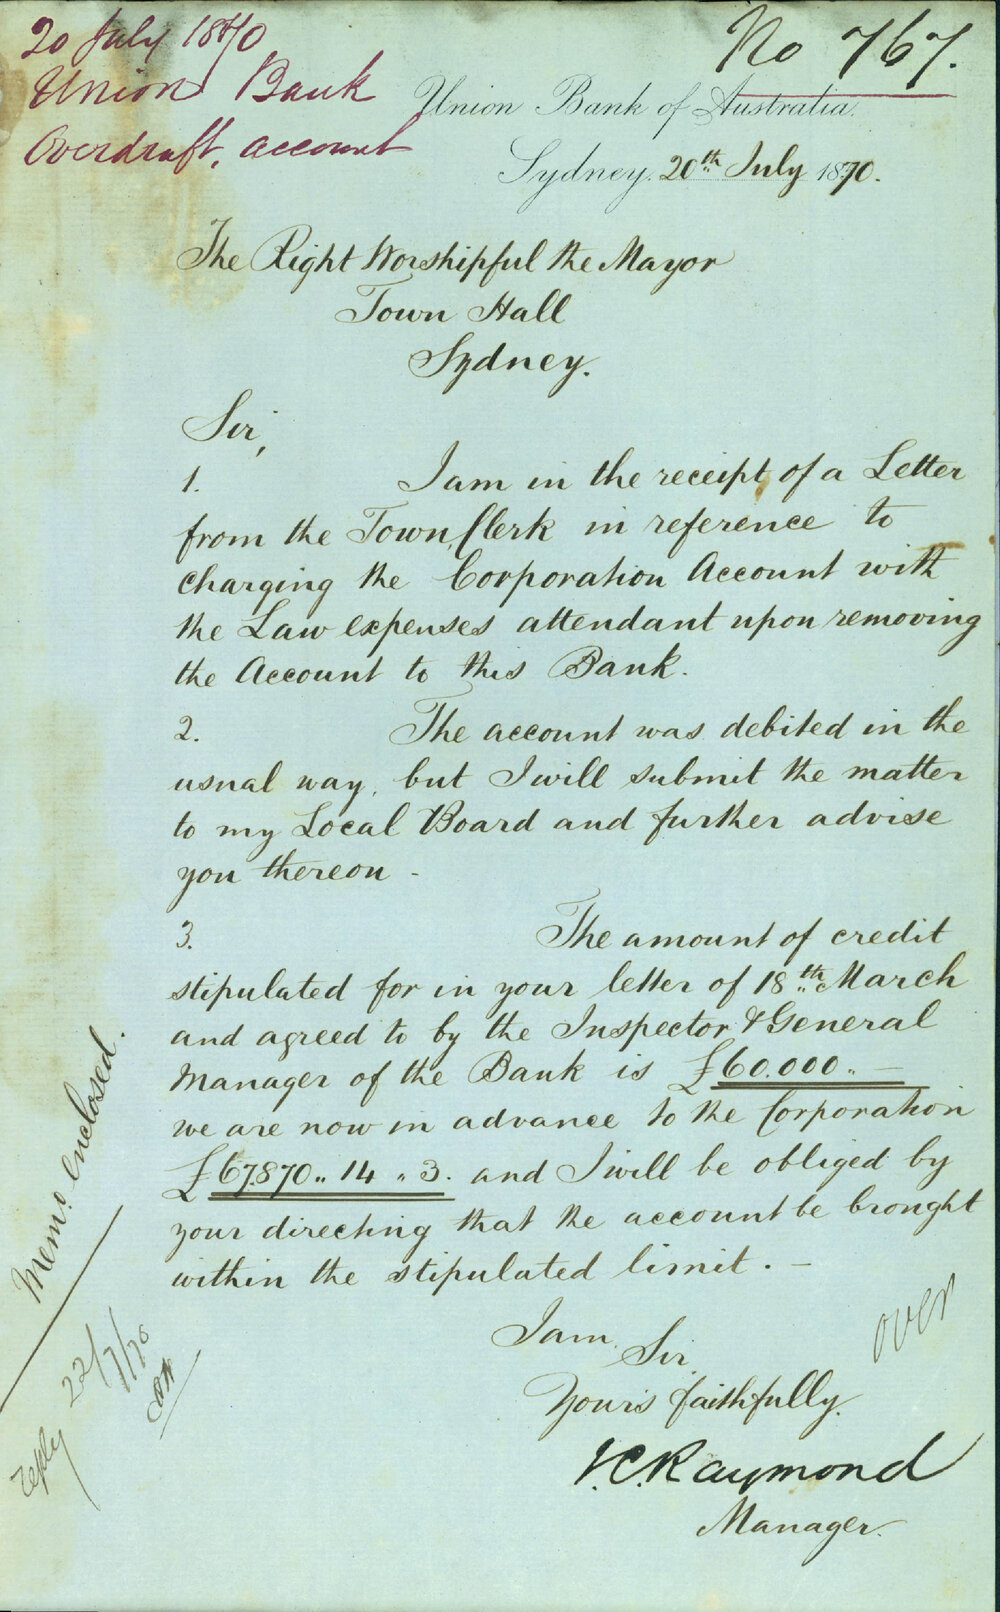 20 July 1870
Union Bank
Overdraft, account
No 767.
Union Bank of Australia.
Sydney. 20th July 1870.
The Right Worshipful the Mayor
Town Hall
Sydney.
Sir,
1. I am in the receipt of a Letter
from the Town Clerk in reference to
charging the Corporation Account with
the Law expenses attendant upon removing
the Account to this Bank.
2. The account was debited in the
usual way, but I will submit the matter
to my Local Board and further advise
you thereon -
3. The amount of credit
stipulated for in your letter of 18th March
and agreed to by the Inspector & General
Manager of the Bank is £60.000.. —
we are now in advance to the Corporation
£67870.. 14 .. 3. and I will be obliged by
your directing that the account be brought
within the stipulated limit. —
I am Sir
Yours faithfully.
Raymond
Manager.
over
Memo: enclosed.
reply 22/7/70